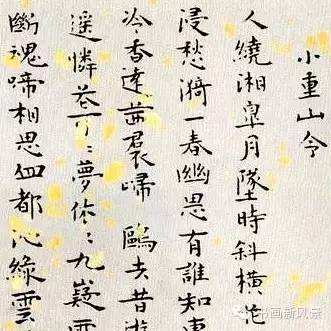 小重山令
人繞湘皋月墜時斜橫
浸愁漪一春幽思有誰知
冷香遠茜裠歸 鷗去昔遊
遥憐花可〻夢依〻九嶷雲
斷魂啼相思血都沁綠雲
书画新风景